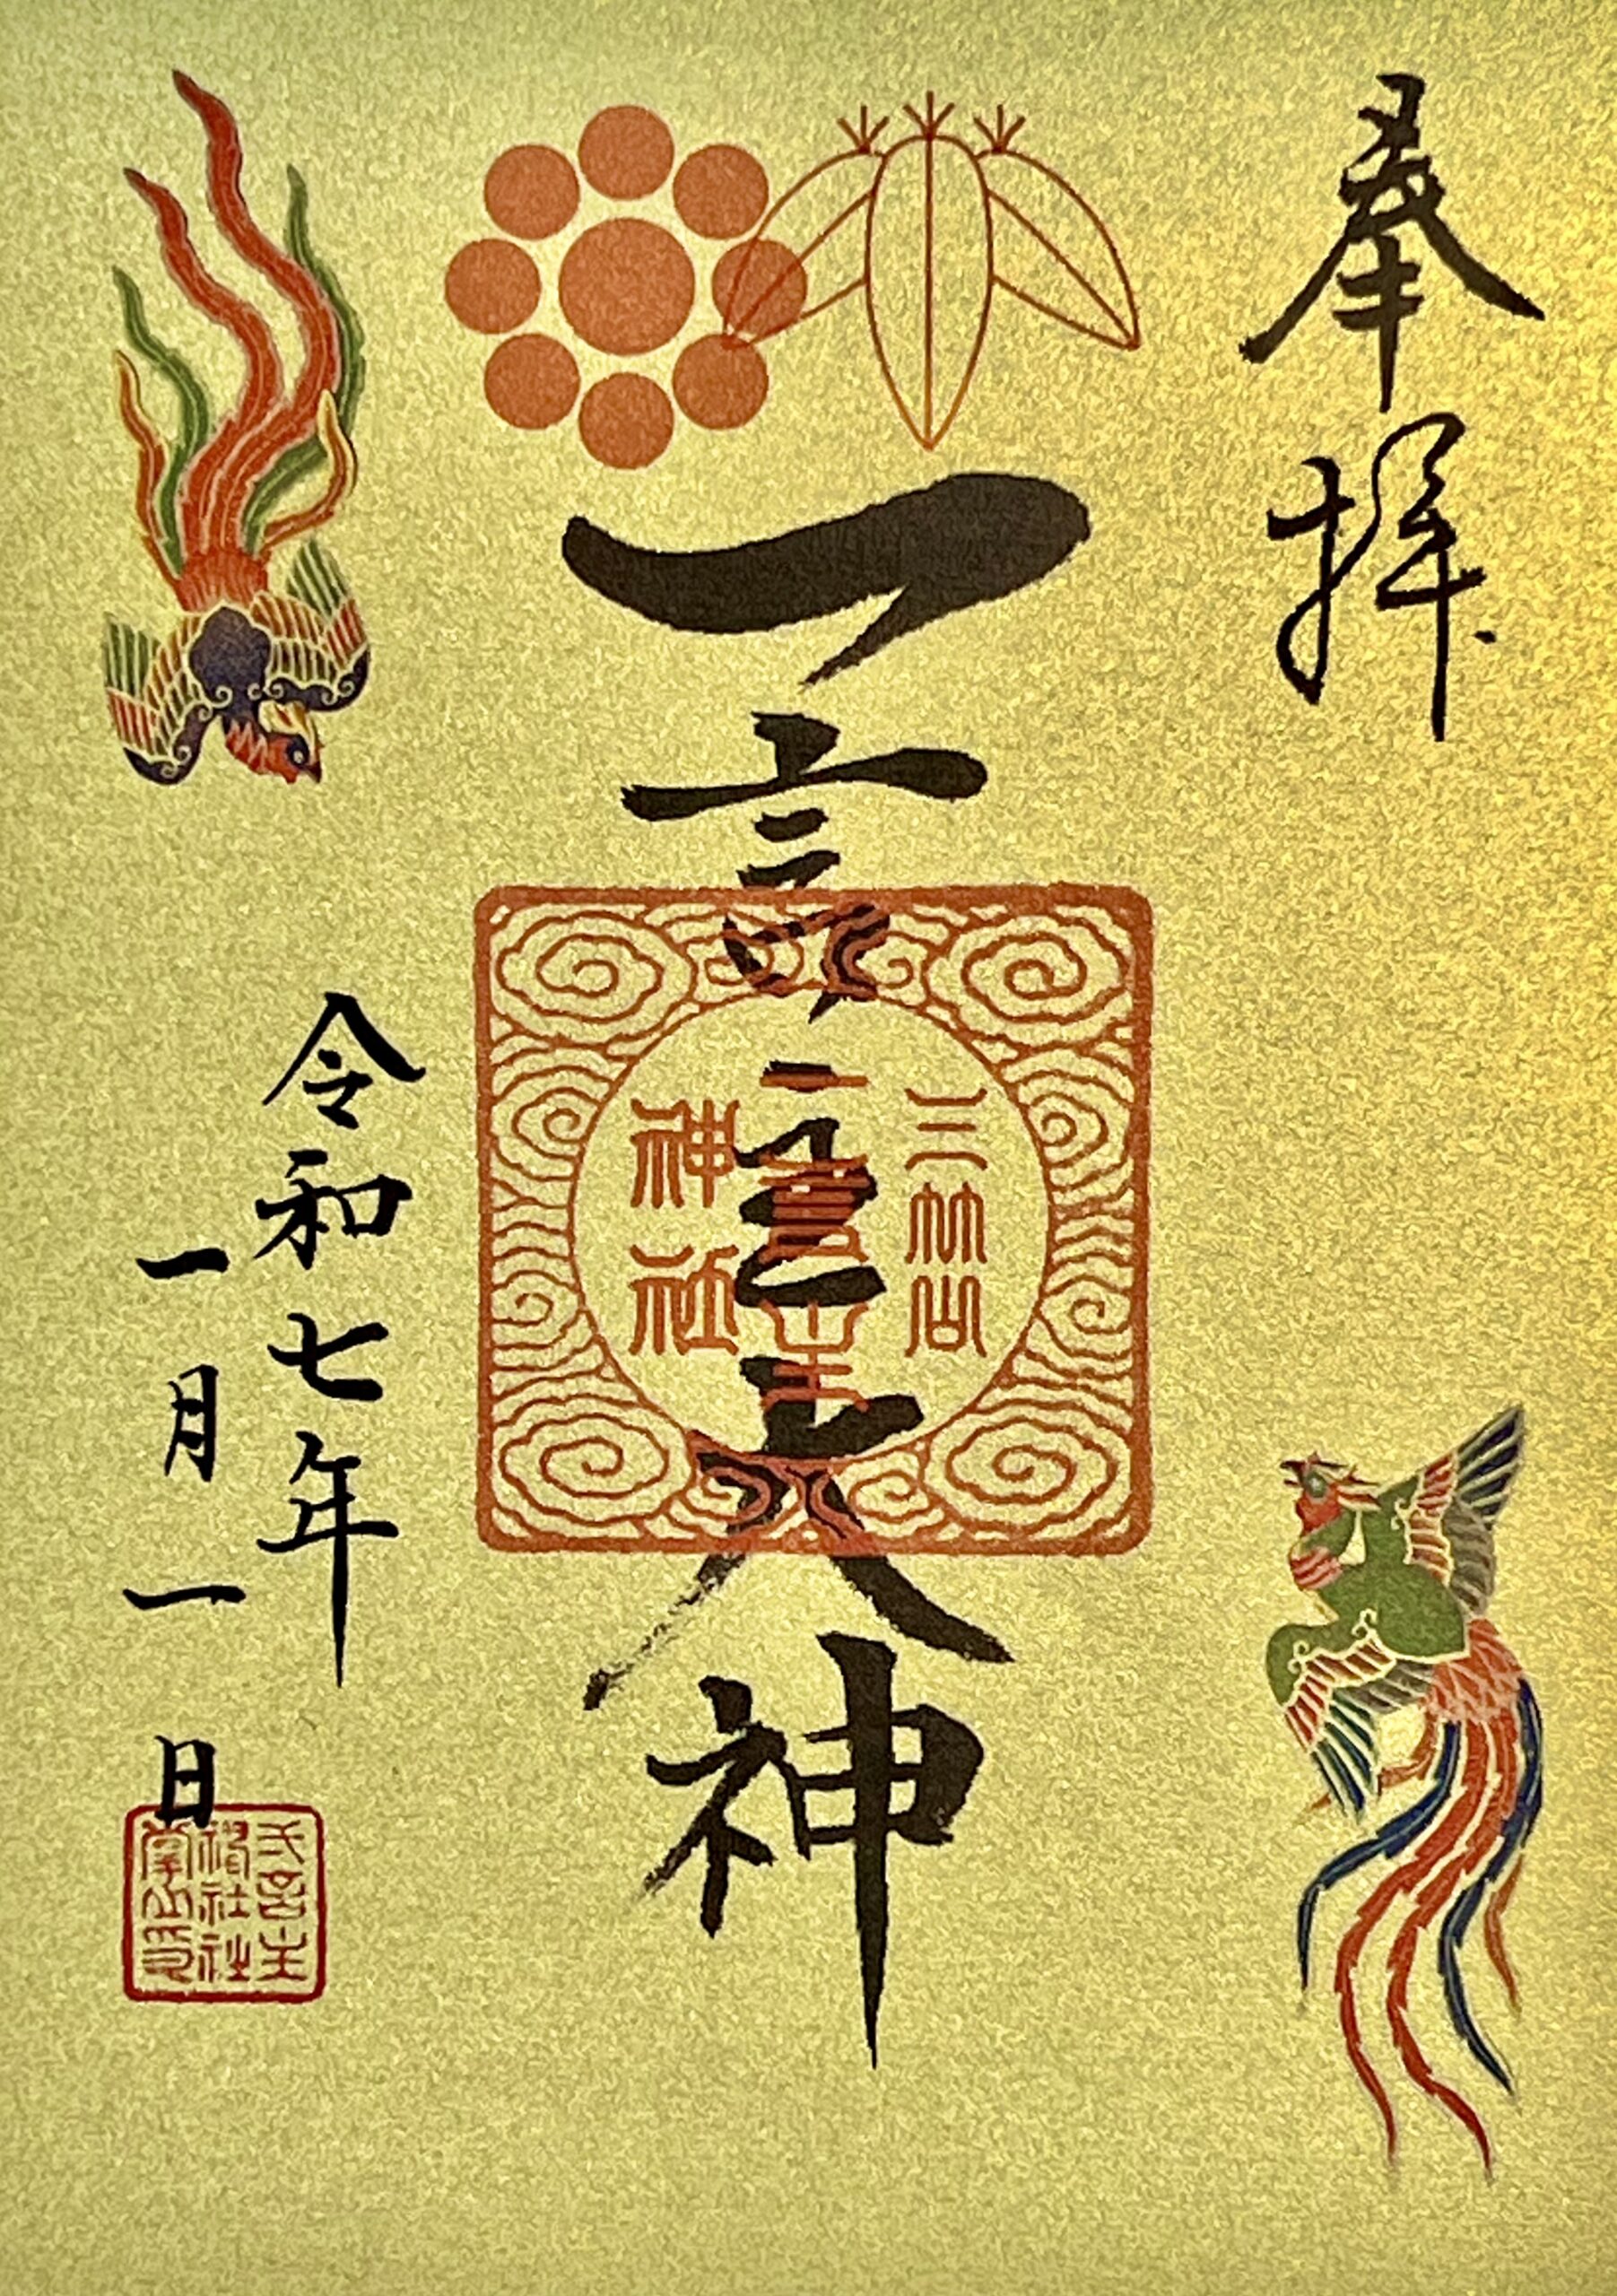 奉拝
一言主大神
三竹山
一言主
神社
令和七年
一月一日
弌言主
神社社
掌之印